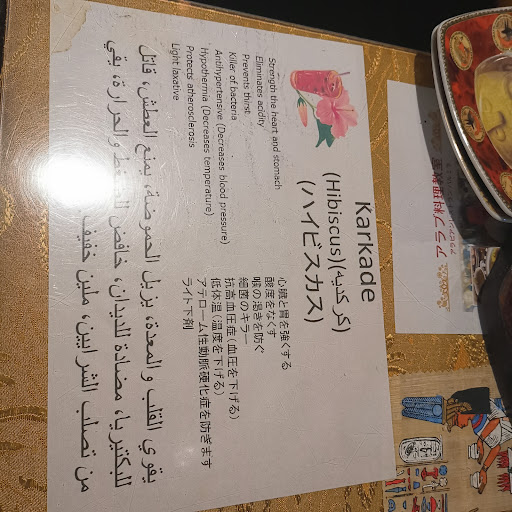 Karkade
(Hibiscus)(كركديه)
(ハイビスカス)
Strength the heart and stomach
Eliminates acidity
Prevents thirst
Killer of bacteria
Antihypertensive (Decreases blood pressure)
Hypothermia (Decreases temperature)
Protects atherosclerosis
Light laxative
心臓と胃を強くする
酸度をなくす
喉の渇きを防ぐ
細菌のキラー
抗高血圧症(血圧を下げる)
低体温(温度を下げる)
アテローム性動脈硬化症を防ぎます
ライト下剤
يقوي القلب والمعدة، يزيل الحموضة، يمنع العطش، قاتل
للبكتيريا، مضادة للديدان، خافض للضغط والحرارة، يقي
من تصلب الشرايين، ملين خفيف